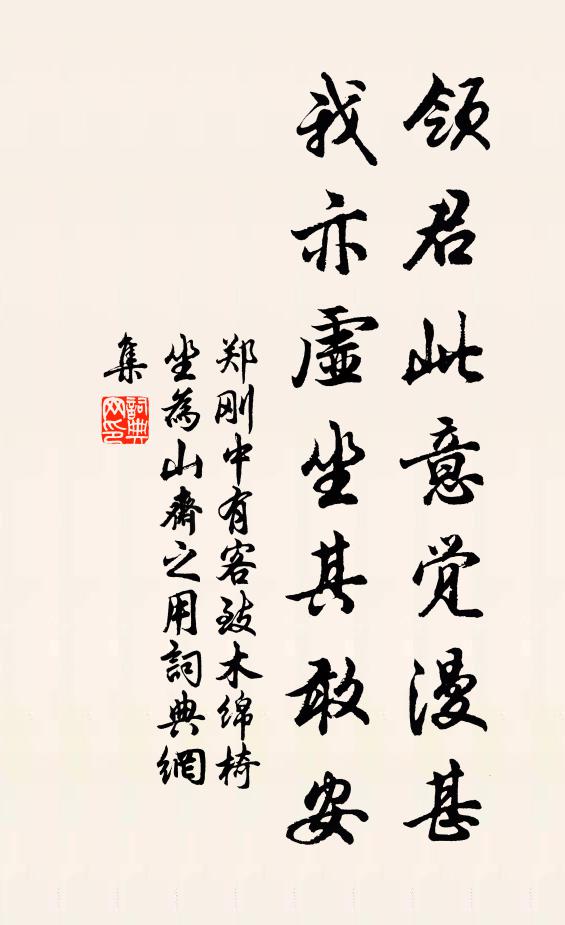 领君此意觉漫甚
我亦虚坐其敢安
郑刚中有客致木绵椅
坐為山齋之用詞典網
集
詞典
网印